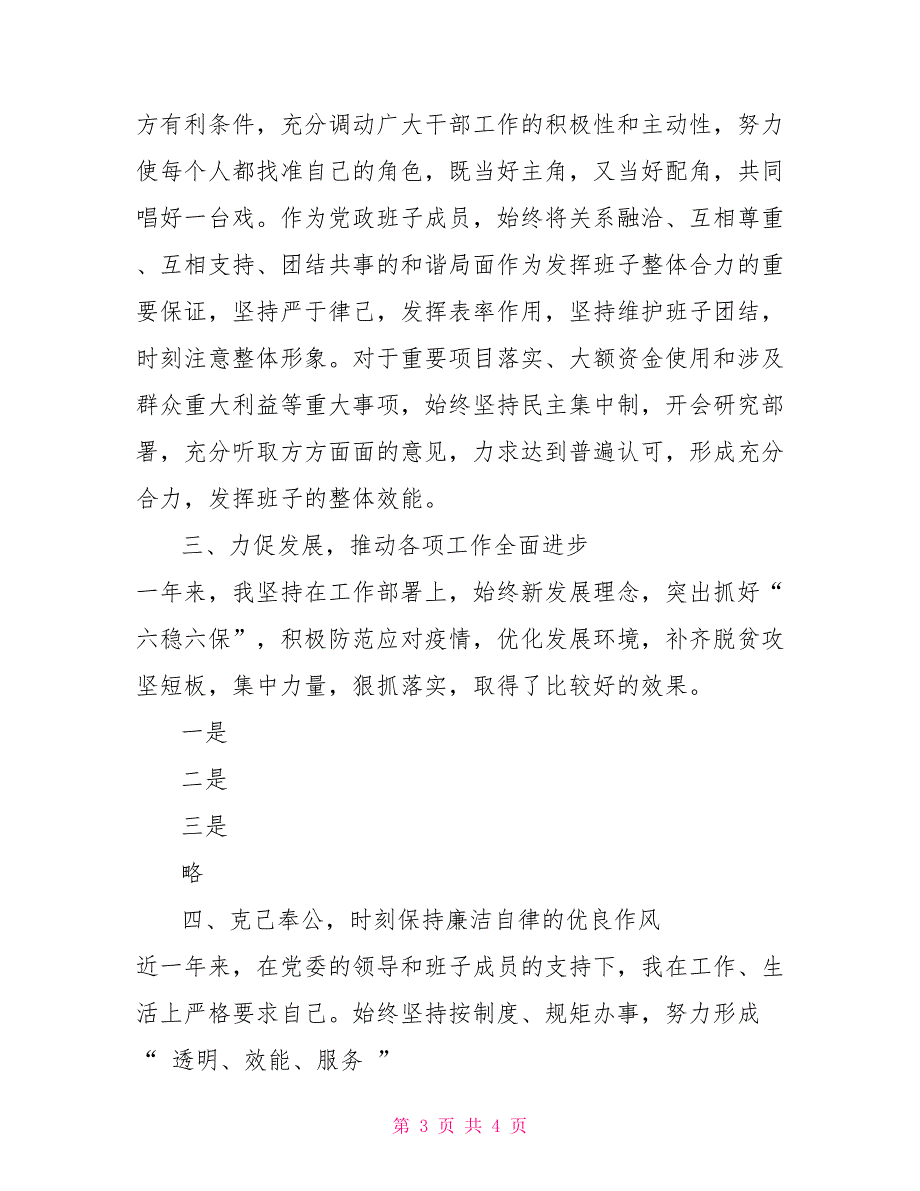 方有利条件，充分调动广大干部工作的积极性和主动性，努力
使每个人都找准自己的角色，既当好主角，又当好配角，共同
唱好一台戏。作为党政班子成员，始终将关系融洽、互相尊重
、互相支持、团结共事的和谐局面作为发挥班子整体合力的重
要保证，坚持严于律己，发挥表率作用，坚持维护班子团结，
时刻注意整体形象。对于重要项目落实、大额资金使用和涉及
群众重大利益等重大事项，始终坚持民主集中制，开会研究部
署，充分听取方方面面的意见，力求达到普遍认可，形成充分
合力，发挥班子的整体效能。
三、力促发展，推动各项工作全面进步
一年来，我坚持在工作部署上，始终新发展理念，突出抓好“
六稳六保”，积极防范应对疫情，优化发展环境，补齐脱贫攻
坚短板，集中力量，狠抓落实，取得了比较好的效果。
一是
二是
三是
略
四、克己奉公，时刻保持廉洁自律的优良作风
近一年来，在党委的领导和班子成员的支持下，我在工作、生
活上严格要求自己。始终坚持按制度、规矩办事，努力形成
“ 透明、效能、服务 ”
第 3 页 共 4 页